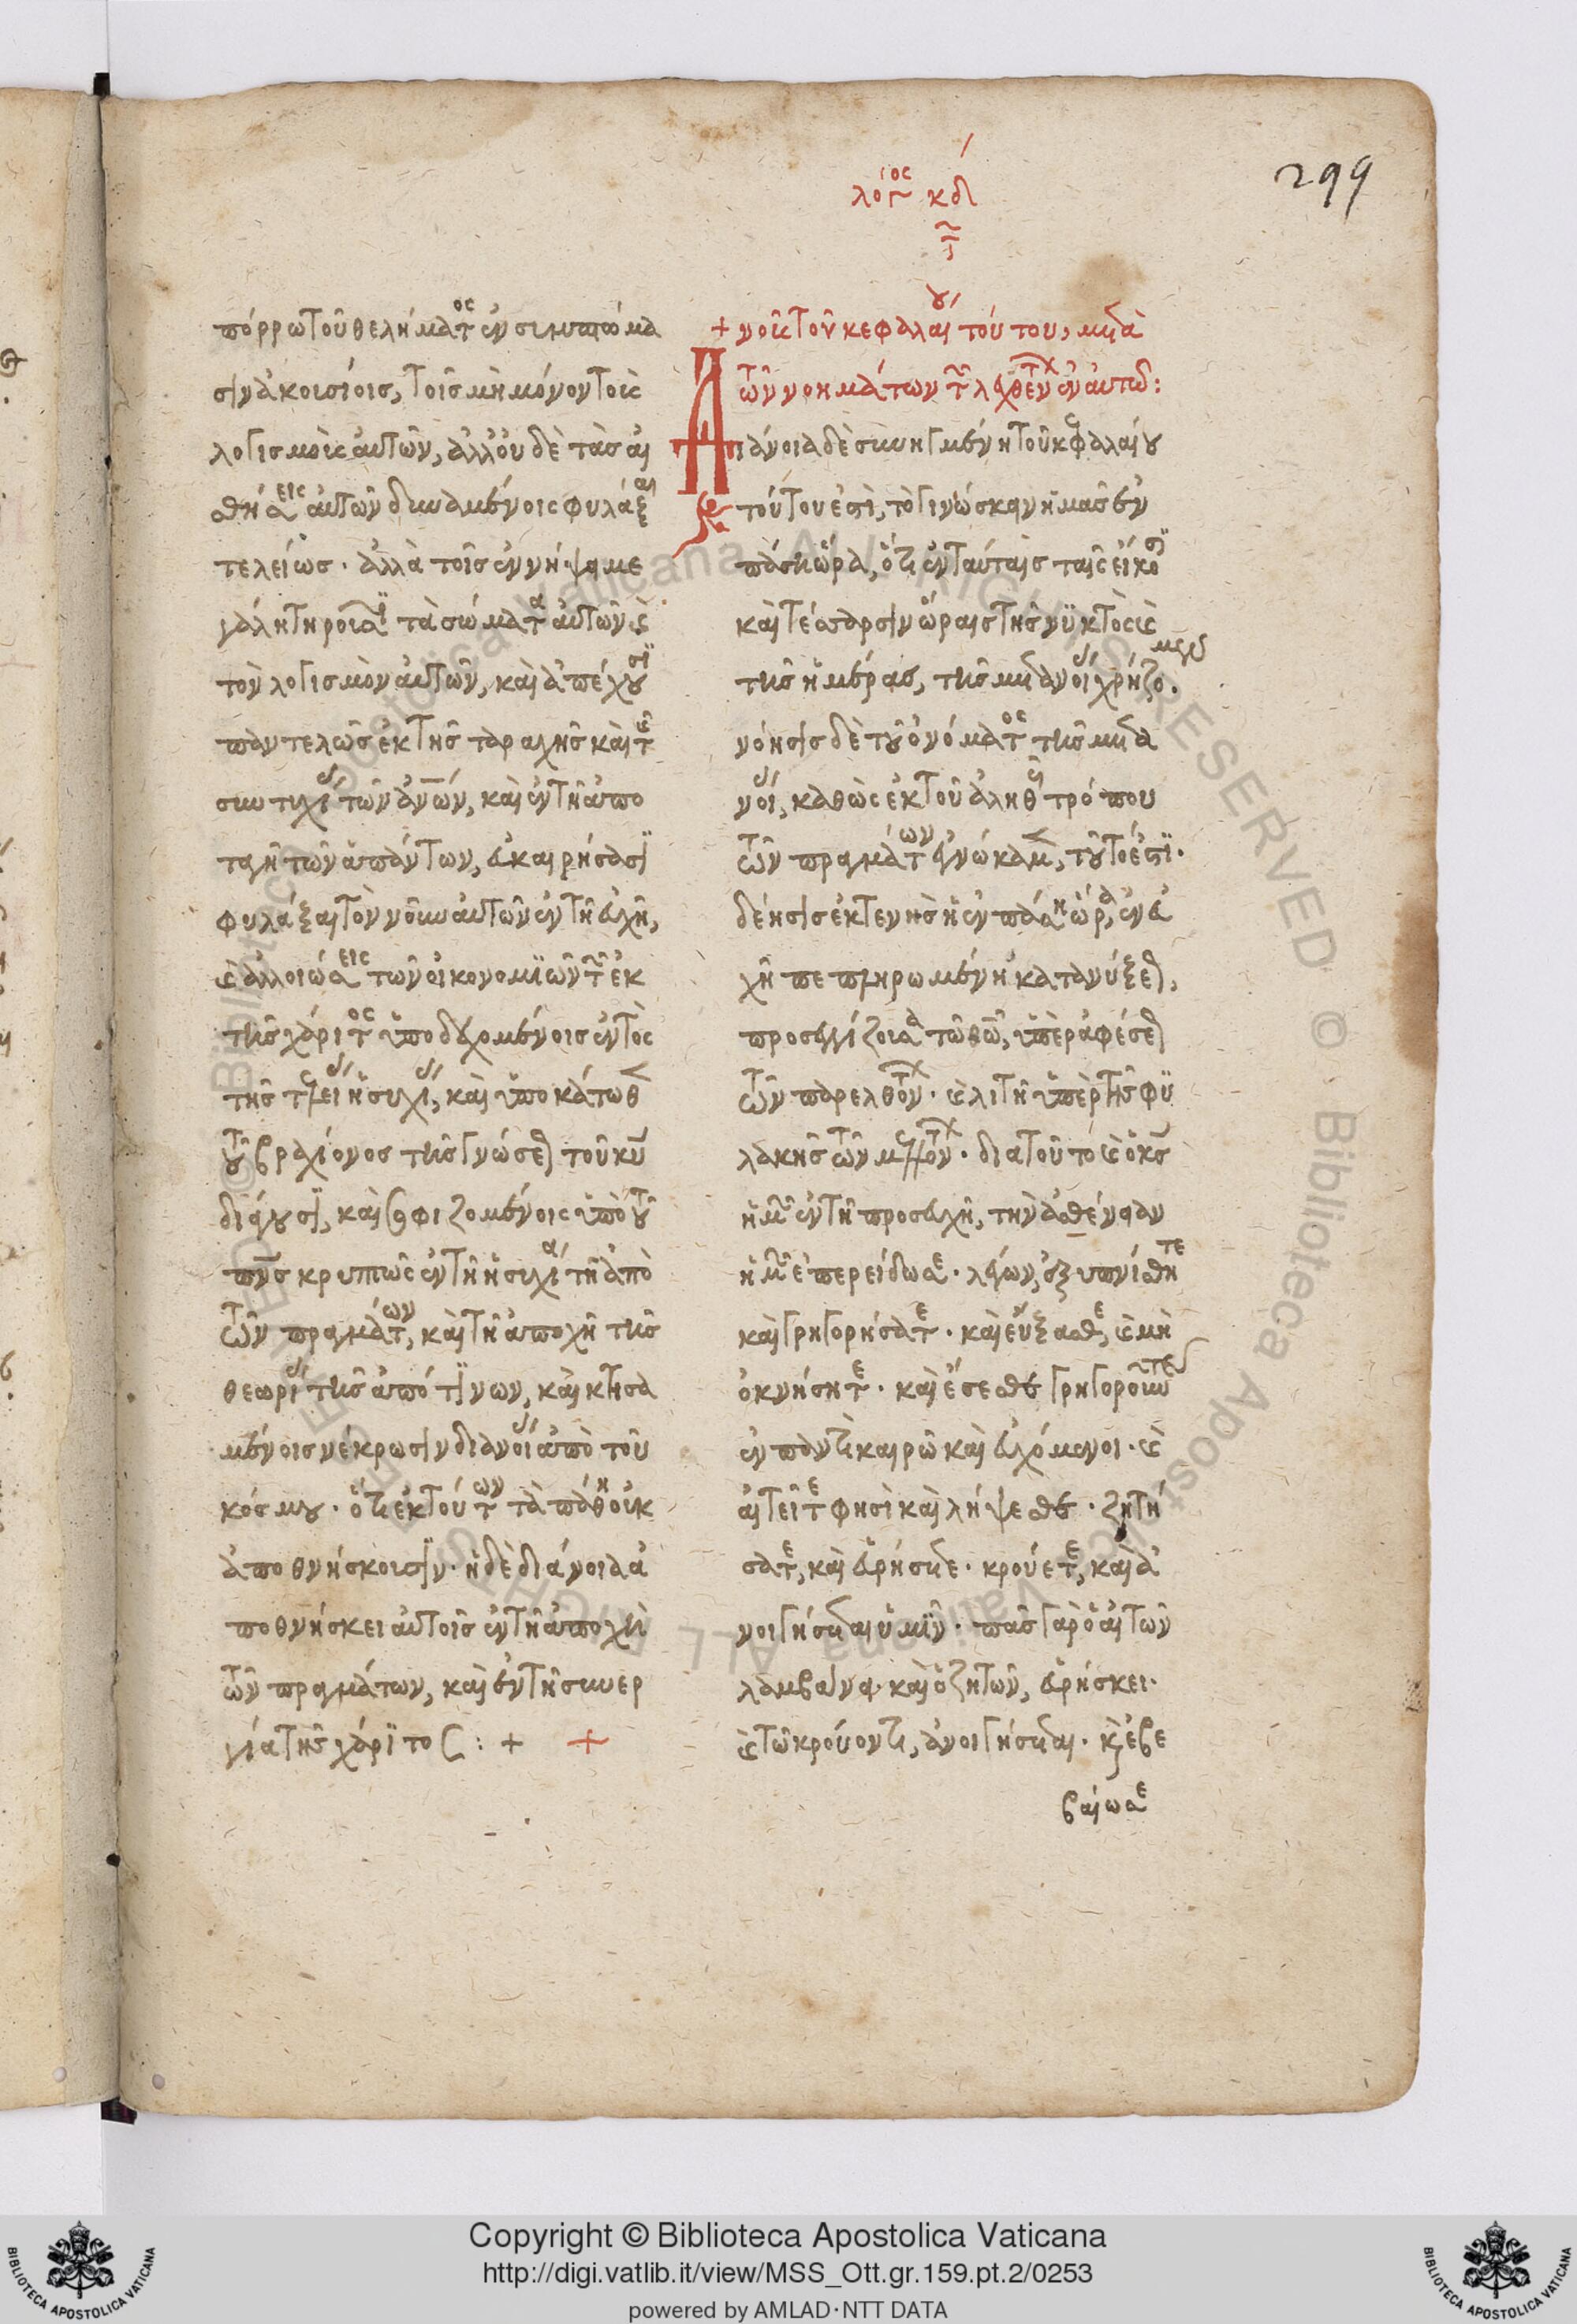 λόγος κδ
299
πόρρω τοῦ θελήματος ἐν συμπτώμα
σιν ἀκουσίοις, τοῖς μὴ μόνον τοῖς
λογισμοῖς αὐτῶν, ἀλλ' οὐδὲ τὰς αἰ
σθήσεις αὐτῶν δυναμένοις φυλάξαι
τελείως· ἀλλὰ τοῖς ἐν νήψει με
γάλη τηροῦσι τὰ σώματα αὐτῶν καὶ
τὸν λογισμὸν αὐτῶν, καὶ ἀπέχουσι
παντελῶς ἐκ τῆς ταραχῆς καὶ τῆς
συντυχίας τῶν ἀνων, καὶ ἐν τῆ ἀπο
ταγῆ τῶν ἁπάντων, εὐκαιρήσασι
φυλάξαι τὸν νοῦν αὐτῶν ἐν τῆ εὐχῆ,
καὶ ἀλλοιώσεις τῶν οἰκονομιῶν τῶν ἐκ
τῆς χάριτος ὑποδεχομένοις ἐντὸς
τῆς ἡσυχίας, καὶ ὑποκάτωθεν
τοῦ βραχίονος τῆς γνώσεως τοῦ κυ
διάγουσι, καὶ σοφιζομένοις ὑπὸ τοῦ
πνς κρυπτῶς ἐν τῆ ἡσυχία τῆ ἀπὸ
τῶν πραγμάτων, καὶ τῆ ἀποχῆ τῆς
θεωρίας τῆς ἀπό τινων, καὶ κτησα
μένοις νέκρωσιν διανοίας ἀπὸ τοῦ
κόσμου· ὅτι ἐκ τούτων τὰ πάθη οὐκ
ἀποθνήσκουσιν· ἡ δὲ διάνοια ἀ
ποθνήσκει αὐτοῖς ἐν τῆ ἀποχῆ
τῶν πραγμάτων, καὶ ἐν τῆ συνερ
γία τῆς χάριτος: + +
+ νοῦς τοῦ κεφαλαίου τούτου, μετὰ
τῶν νοημάτων τῶν λεχθέντων ἐν αὐτῶ:
Διάνοια δὲ συνηγμένη τοῦ κεφαλαίου
τούτου ἐστὶ, τὸ γινώσκειν ἡμᾶς ἐν
πάση ὥρα, ὅτι ἐν ταύταις ταῖς εἴκοσι
καὶ τέσσαρσιν ὥραις τῆς νυκτὸς καὶ
τῆς ἡμέρας, τῆς μετανοίας χρήζομεν.
νόησις δὲ τοῦ ὀνόματος τῆς μετα
νοίας, καθὼς ἐκ τοῦ ἀληθοῦς τρόπου
τῶν πραγμάτων ἐγνώκαμεν, τοῦτο ἐστι·
δέησις ἐκτενὴς ἡ ἐν πάση ὥρα, ἐν εὐ
χῆ πεπληρωμένη κατανύξεως,
προσεγγίζουσα τῶ θῶ, ὑπὲρ ἀφέσεως
τῶν παρελθόντων· καὶ λιτὴ ὑπὲρ τῆς φυ
λακῆς τῶν μελλόντων· διὰ τοῦτο καὶ ὁ κς
ἡμῶν ἐν τῆ προσευχῆ, τὴν ἀσθένειαν
ἡμῶν ἐπερείδωσε· λέγων, ἐξυπνίσθητε
καὶ γρηγορήσατε· καὶ εὔξασθε, καὶ μὴ
ὀκνήσητε· καὶ ἔσεσθε γρηγοροῦντες
ἐν παντὶ καιρῶ καὶ εὐχόμενοι· καὶ
αἰτεῖτε φησὶ καὶ λήψεσθε· ζητή
σατε, καὶ εὑρήσετε· κρούετε, καὶ ἀ
νοιγήσεται ὑμῖν· πᾶς γὰρ ὁ αἰτῶν
λαμβάνει· καὶ ὁ ζητῶν, εὑρήσκει·
καὶ τῶ κρούοντι, ἀνοιγήσεται· καὶ ἐβε
βαίωσε
Copyright © Biblioteca Apostolica Vaticana
http://digi.vatlib.it/view/MSS_Ott.gr.159.pt.2/0253
powered by AMLAD·NTT DATA